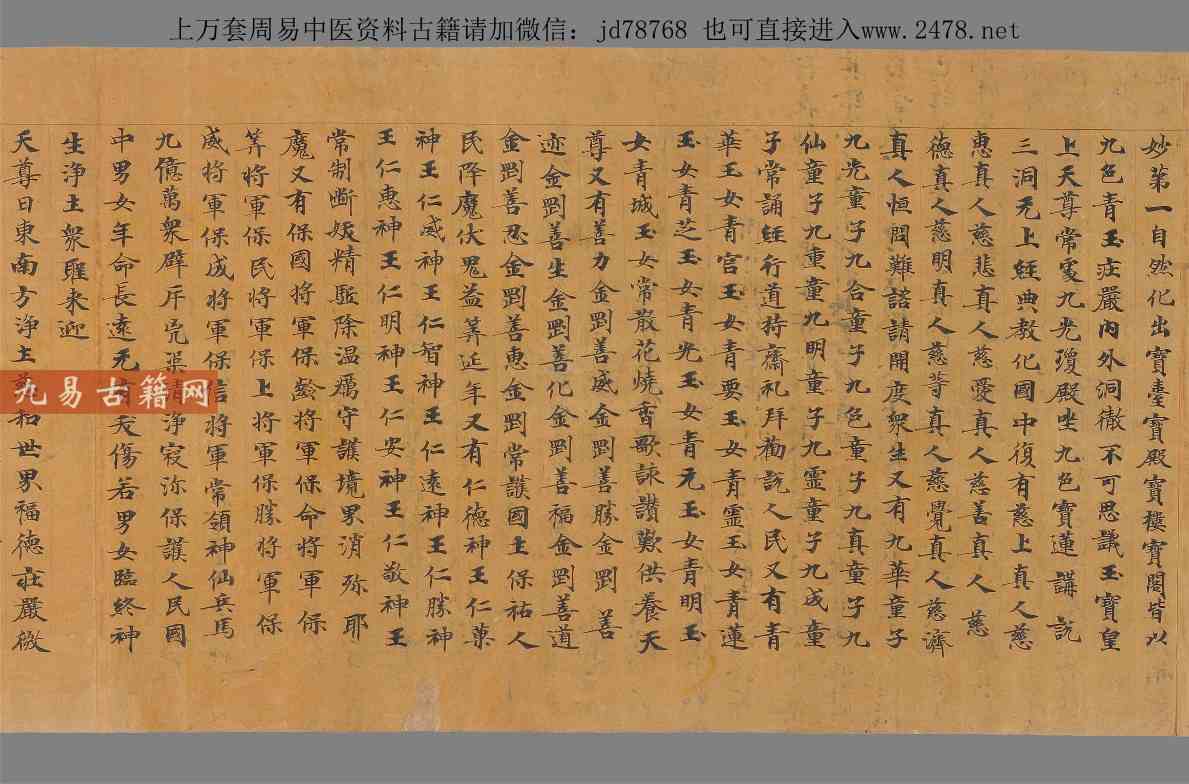 上万套周易中医资料古籍请加微信：jd78768 也可直接进入www.2478.net
妙苐一自然化出寶臺寶殿寶樓寶閣皆以
九色青玉庄嚴內外洞徹不可思議玉寶皇
上天尊常處九光瓊殿坐九色寶蓮講說
三洞无上經典教化國中復有慈上真人慈
惠真人慈悲真人慈愛真人慈善真人慈
德真人慈明真人慈等真人慈覺真人慈濟
真人恒問難諮請開度衆生又有九華童子
九光童子九合童子九色童子九真童子九
仙童子九重童九明童子九靈童子九成童
子常誦經行道持齋礼拜勸說人民又有青
華玉女青宮玉女青要玉女青靈玉女青蓮
玉女青芝玉女青光玉女青元玉女青明玉
女青城玉女常散花燒香歌詠讚歎供養天
尊又有善力金剛善威金剛善勝金剛善
迹金剛善生金剛善化金剛善福金剛善道
金剛善忍金剛善惠金剛常護國土保祐人
民降魔伏鬼益筭延年又有仁德神王仁藥
神王仁威神王仁智神王仁遠神王仁勝神
王仁惠神王仁明神王仁安神王仁敬神王
常制斷妖精駈除温癘守護境界消弥耶
魔又有保國將軍保齡將軍保命將軍保
筭將軍保民將軍保上將軍保勝將軍保
威將軍保成將軍保信將軍常領神仙兵馬
九億萬衆辟斥㐫渠清淨寂弥保護人民國
中男女年命長遠无有夭傷若男女臨終神
生淨土衆聖来迎
天尊曰東南方淨土 和世界福德莊嚴微
九易古籍网